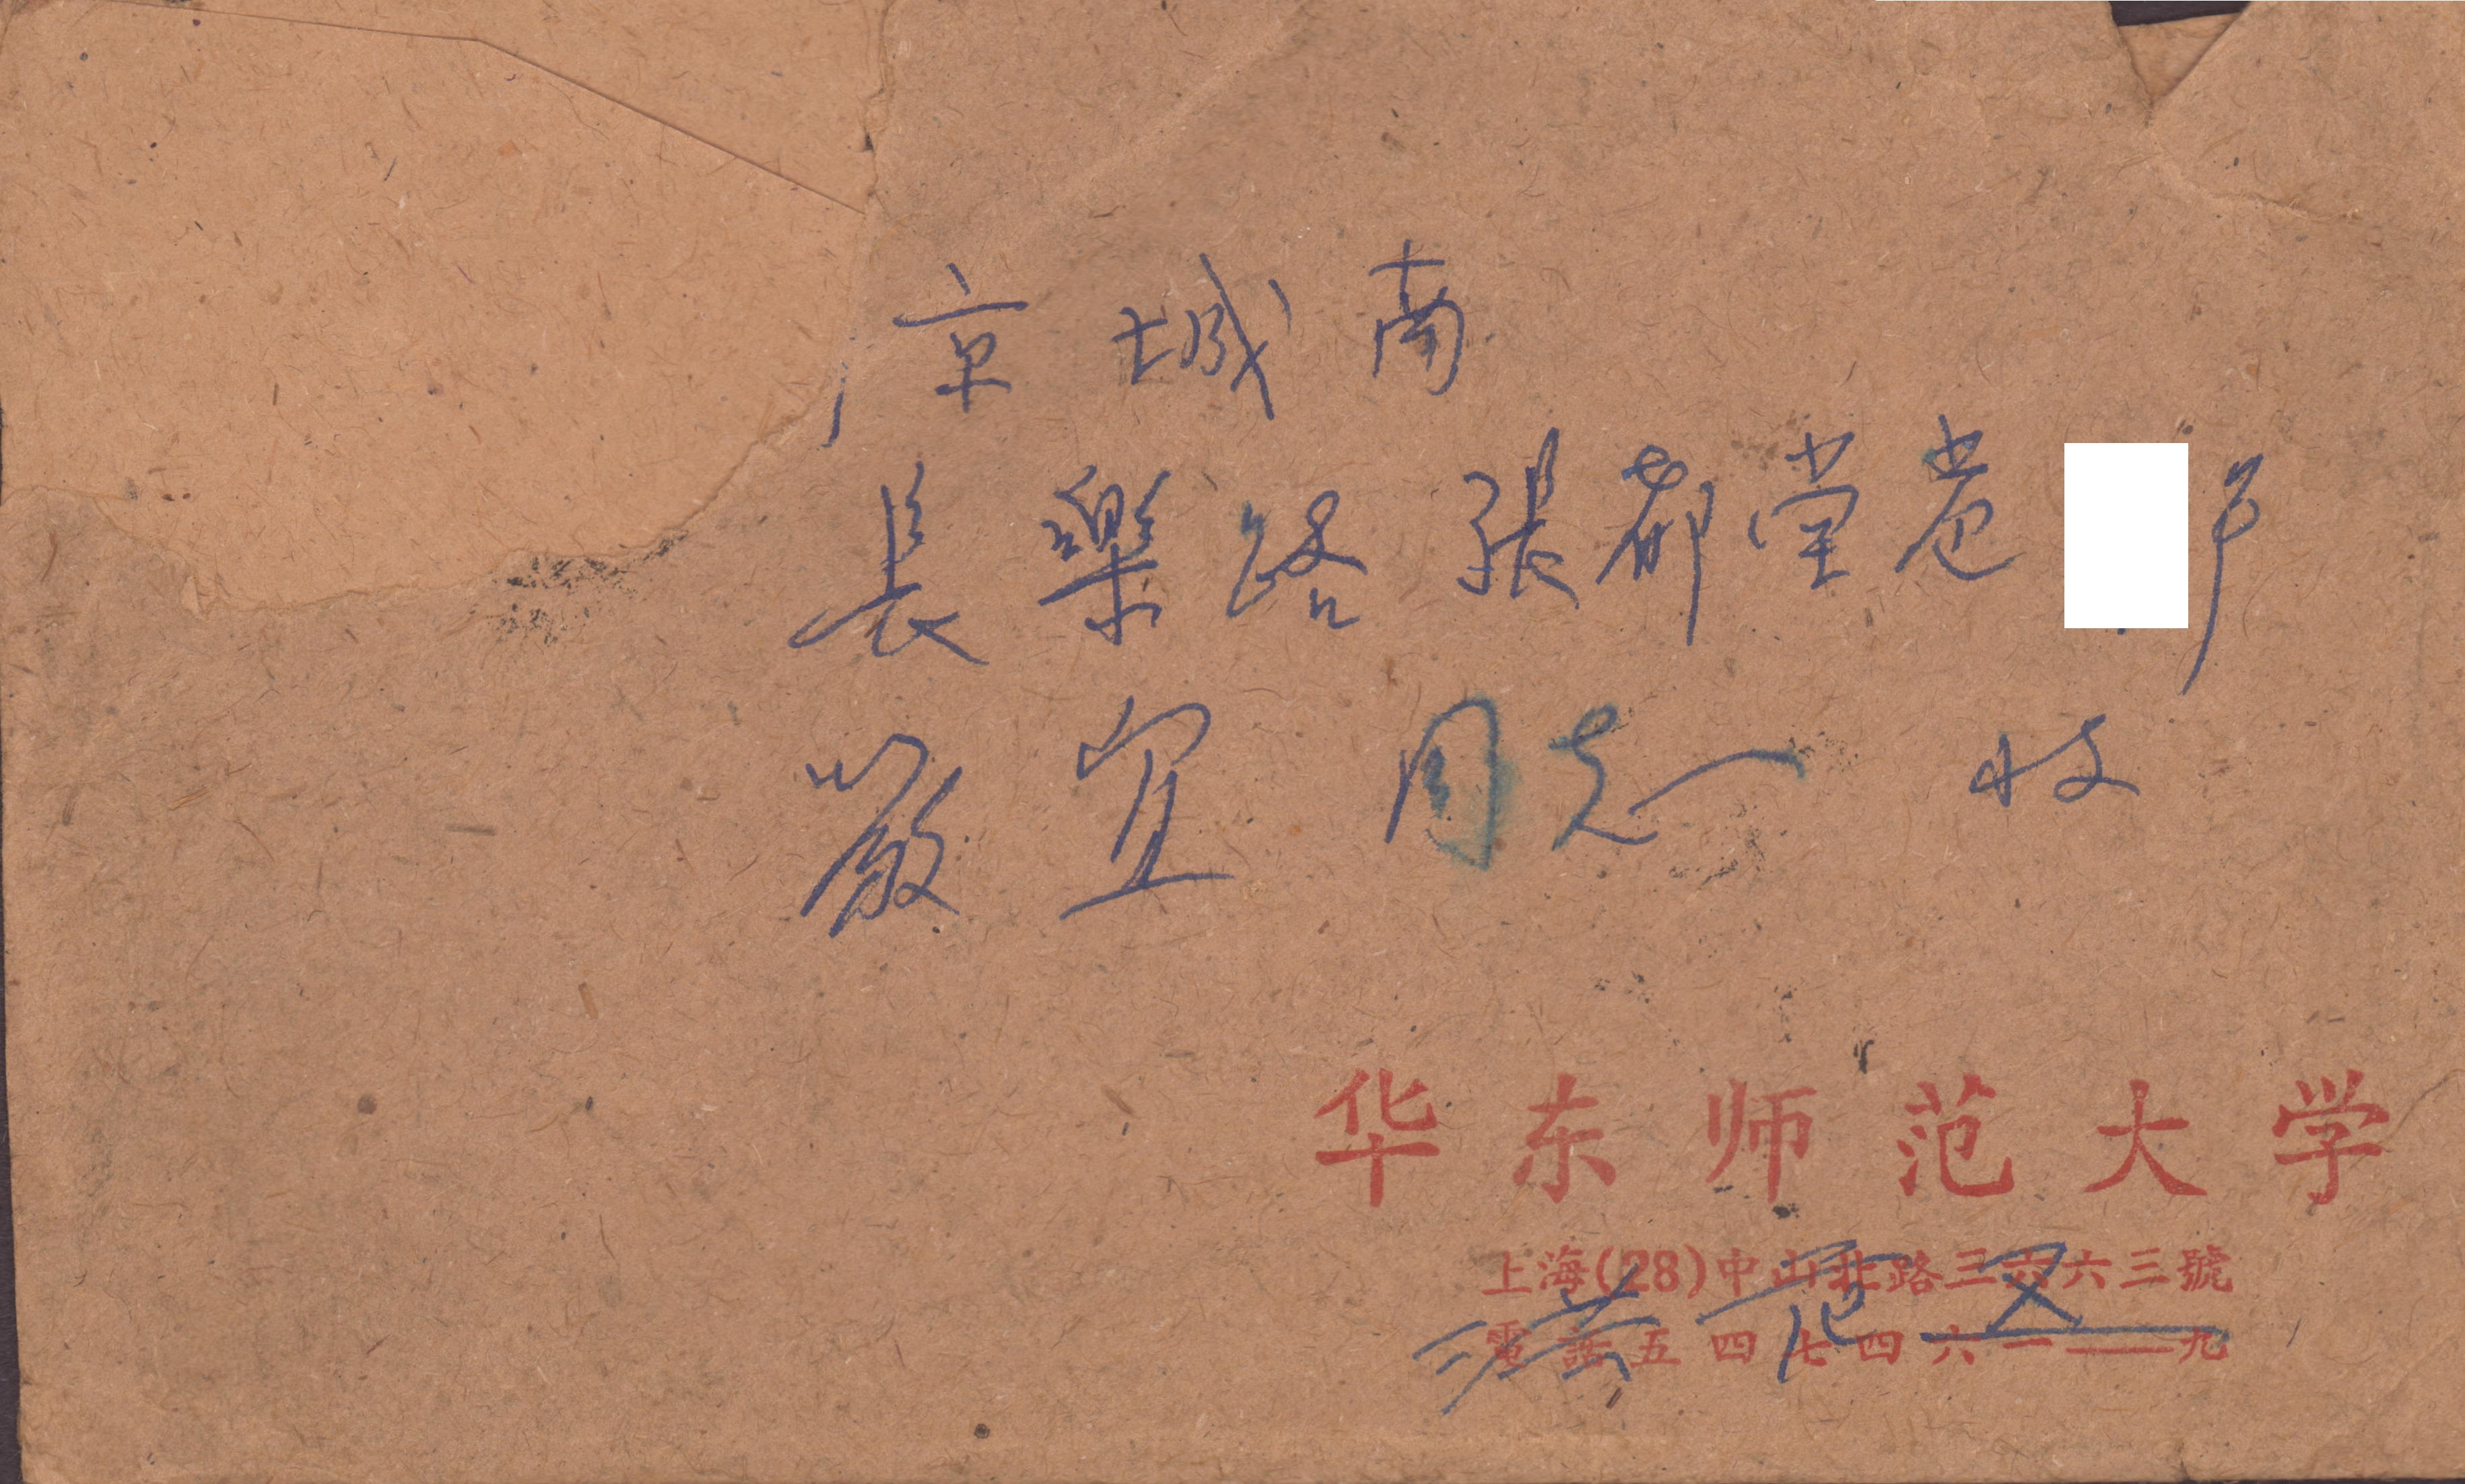 京城南
長樂路張都堂巷 户
嚴宜 同志 收
华东师范大学
上海(28)中山北路三六六三號
電話五四七四六一——九